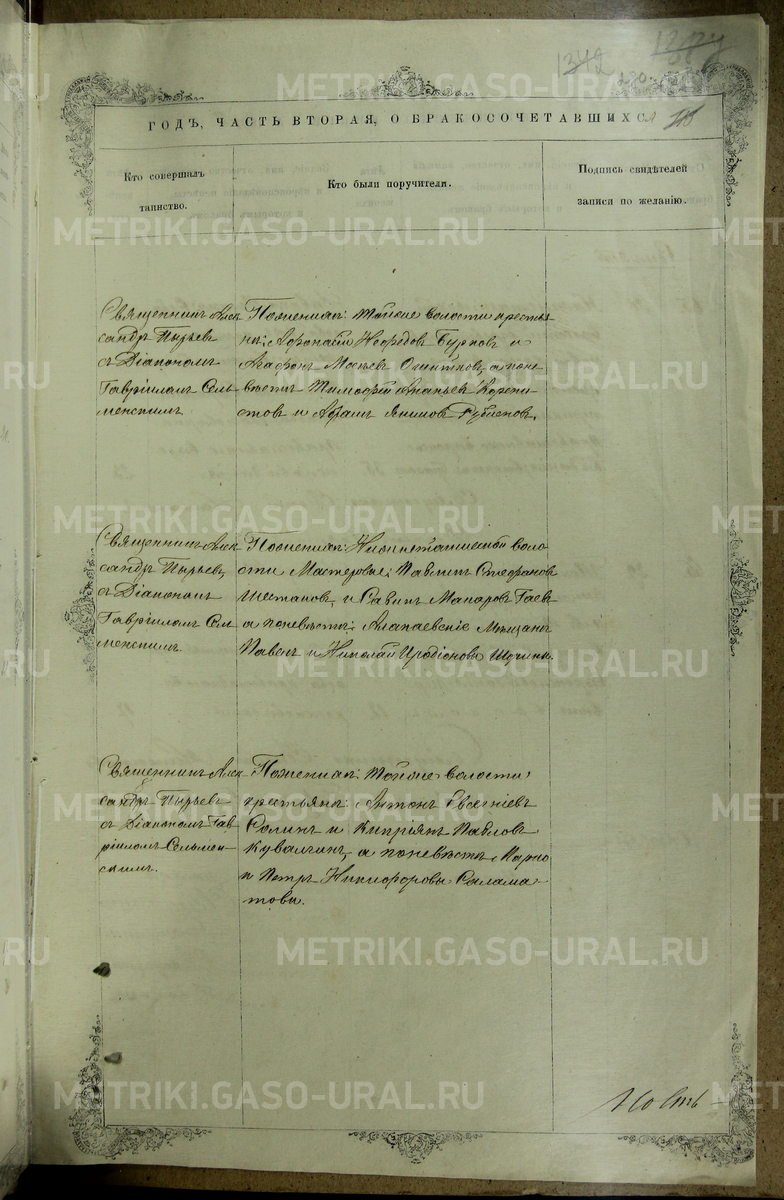 1342
190.
ГОДЪ, ЧАСТЬ ВТОРАЯ, О БРАКОСОЧЕТАВШИХСЯ
Кто совершалъ
таинство.
Кто были поручители.
Подпись свидѣтелей
записи по желанію.
Священникъ Алек
сандръ Пырьевъ
съ Діакономъ
Гавріиломъ Сель
менскимъ
По женихѣ: той же волости крестья
не: Нефедовъ Бурковъ и
Агафонъ а по не
вѣстѣ Тимофей Ананьевъ
и Якимовъ
Священникъ Алек
сандръ Пырьевъ,
съ Діакономъ
Гавріиломъ Сель
менскимъ.
По женихѣ: Нижнетагильской воло
сти Мастеровые: Павлинъ Стефановъ
Шестаковъ, и Савинъ Макаровъ Гаевъ
а по невѣстѣ: Алапаевскіе Мѣщане
Павелъ и Николай Иродіоновы
Священникъ Алек
сандръ Пырьевъ
съ Діакономъ Гав
ріиломъ Сельмен-
скимъ.
По женихѣ: той же волости
крестьяне: Антонъ Евгеніевъ
Солинъ и Кипріянъ Павловъ
Кувалгинъ, а по невѣстѣ Марко
и Петръ Никифоровы Салама
товы.
METRIKI.GASO-URAL.RU